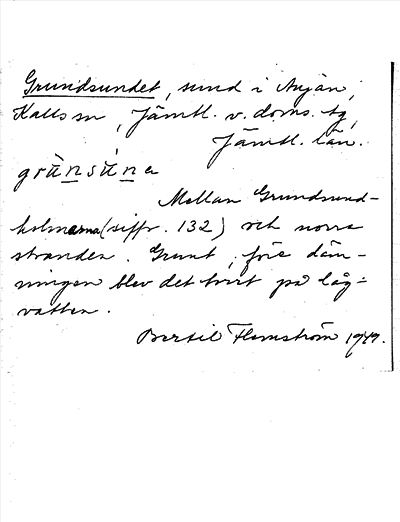 Grundsundet, sund i Anjan,
Kalls sn, Jämtl. v. doms. tg,
Jämtl. län.
grùnsúne
Mellan Grundsund-
holmarna (siffr. 132) och norra
stranden. Grunt, före däm-
ningen blev det torrt på låg-
vatten.
Bertil Flemström 1949.